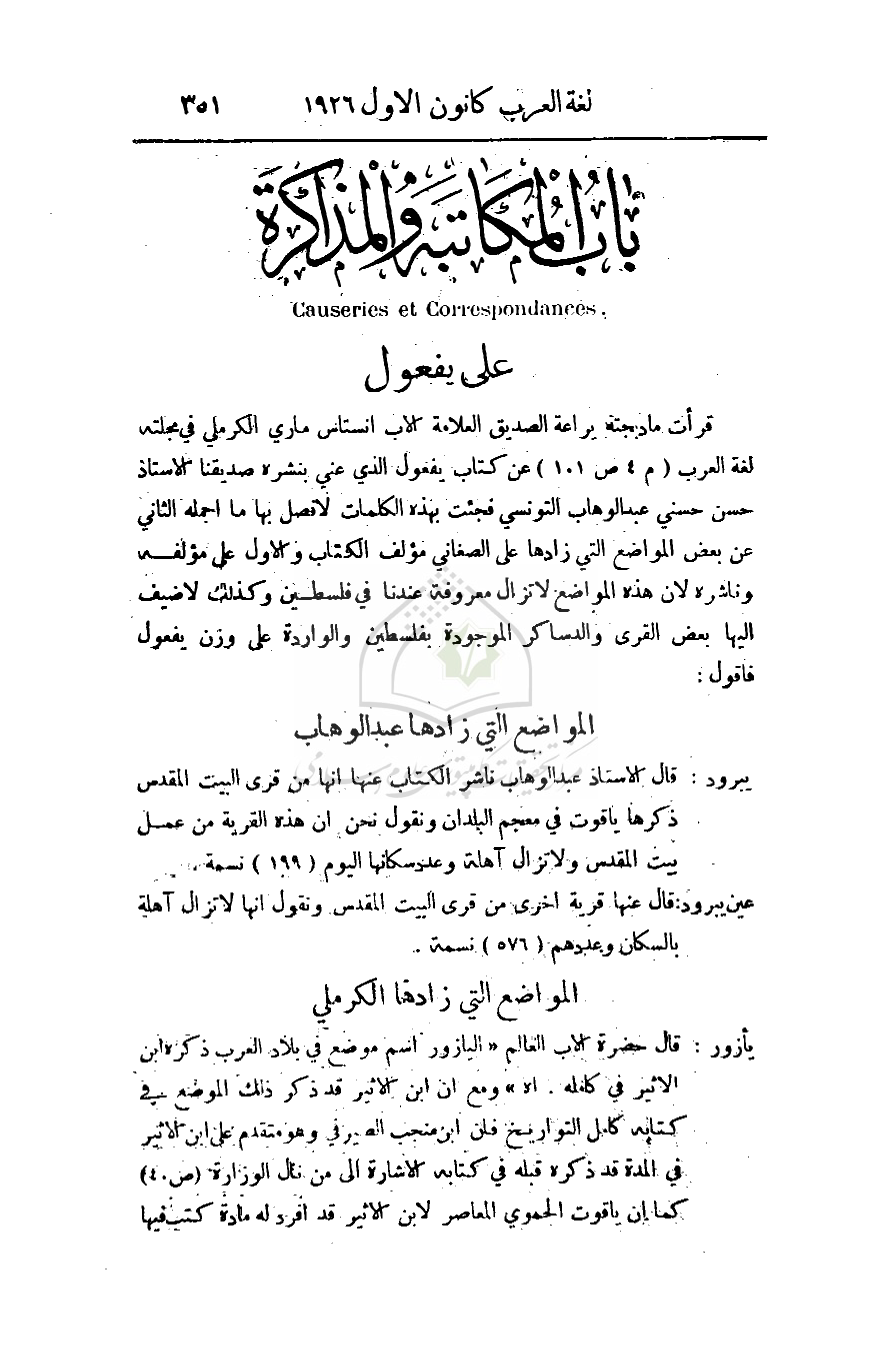 لغة العرب كانون الاول ١٩٢٦ ٣٥١
بَابُ الْمُكَاتَبَة وَالْمُذَاكَرَة
Causeries et Correspondances.
على يفعول
قرأت مادبجته يراعة الصديق العلامة الاب انستاس ماري الكرملي في مجلته
لغة العرب ( م ٤ ص ١٠١ ) عن كتاب يفعول الذي عني بنشره صديقنا الاستاذ
حسن حسني عبدالوهاب التونسي فجئت بهذه الكلمات لافصل بها ما اجمله الثاني
عن بعض المواضع التي زادها على الصغاني مؤلف الكتاب والاول على مؤلفه
وناشره لان هذه المواضع لاتزال معروفة عندنا في فلسطين وكذلك لاضيف
اليها بعض القرى والدساكر الموجودة بفلسطين والواردة على وزن يفعول
فاقول :
المواضع التي زادها عبدالوهاب
يبرود : قال الاستاذ عبدالوهاب ناشر الكتاب عنها انها من قرى البيت المقدس
ذكرها ياقوت في معجم البلدان ونقول نحن ان هذه القرية من عمل
بيت المقدس ولاتزال آهلة وعددسكانها اليوم ( ١٩٩ ) نسمة .
عين يبرود: قال عنها قرية اخرى من قرى البيت المقدس ونقول انها لاتزال آهلة
بالسكان وعددهم ( ٥٧٦ ) نسمة .
المواضع التي زادها الكرملي
يأزور : قال حضرة الاب العالم « اليازور اسم موضع في بلاد العرب ذكره ابن
الاثير في كامله . اه » ومع ان ابن الاثير قد ذكر ذلك الموضع في
كتابه كامل التواريخ فان ابن منجب الصيرفي وهو متقدم على ابن الاثير
في المدة قد ذكره قبله في كتابه الاشارة الى من نال الوزارة (ص٤٠)
كما إن ياقوت الحموي المعاصر لابن الاثير قد افرد له مادة كتب فيها